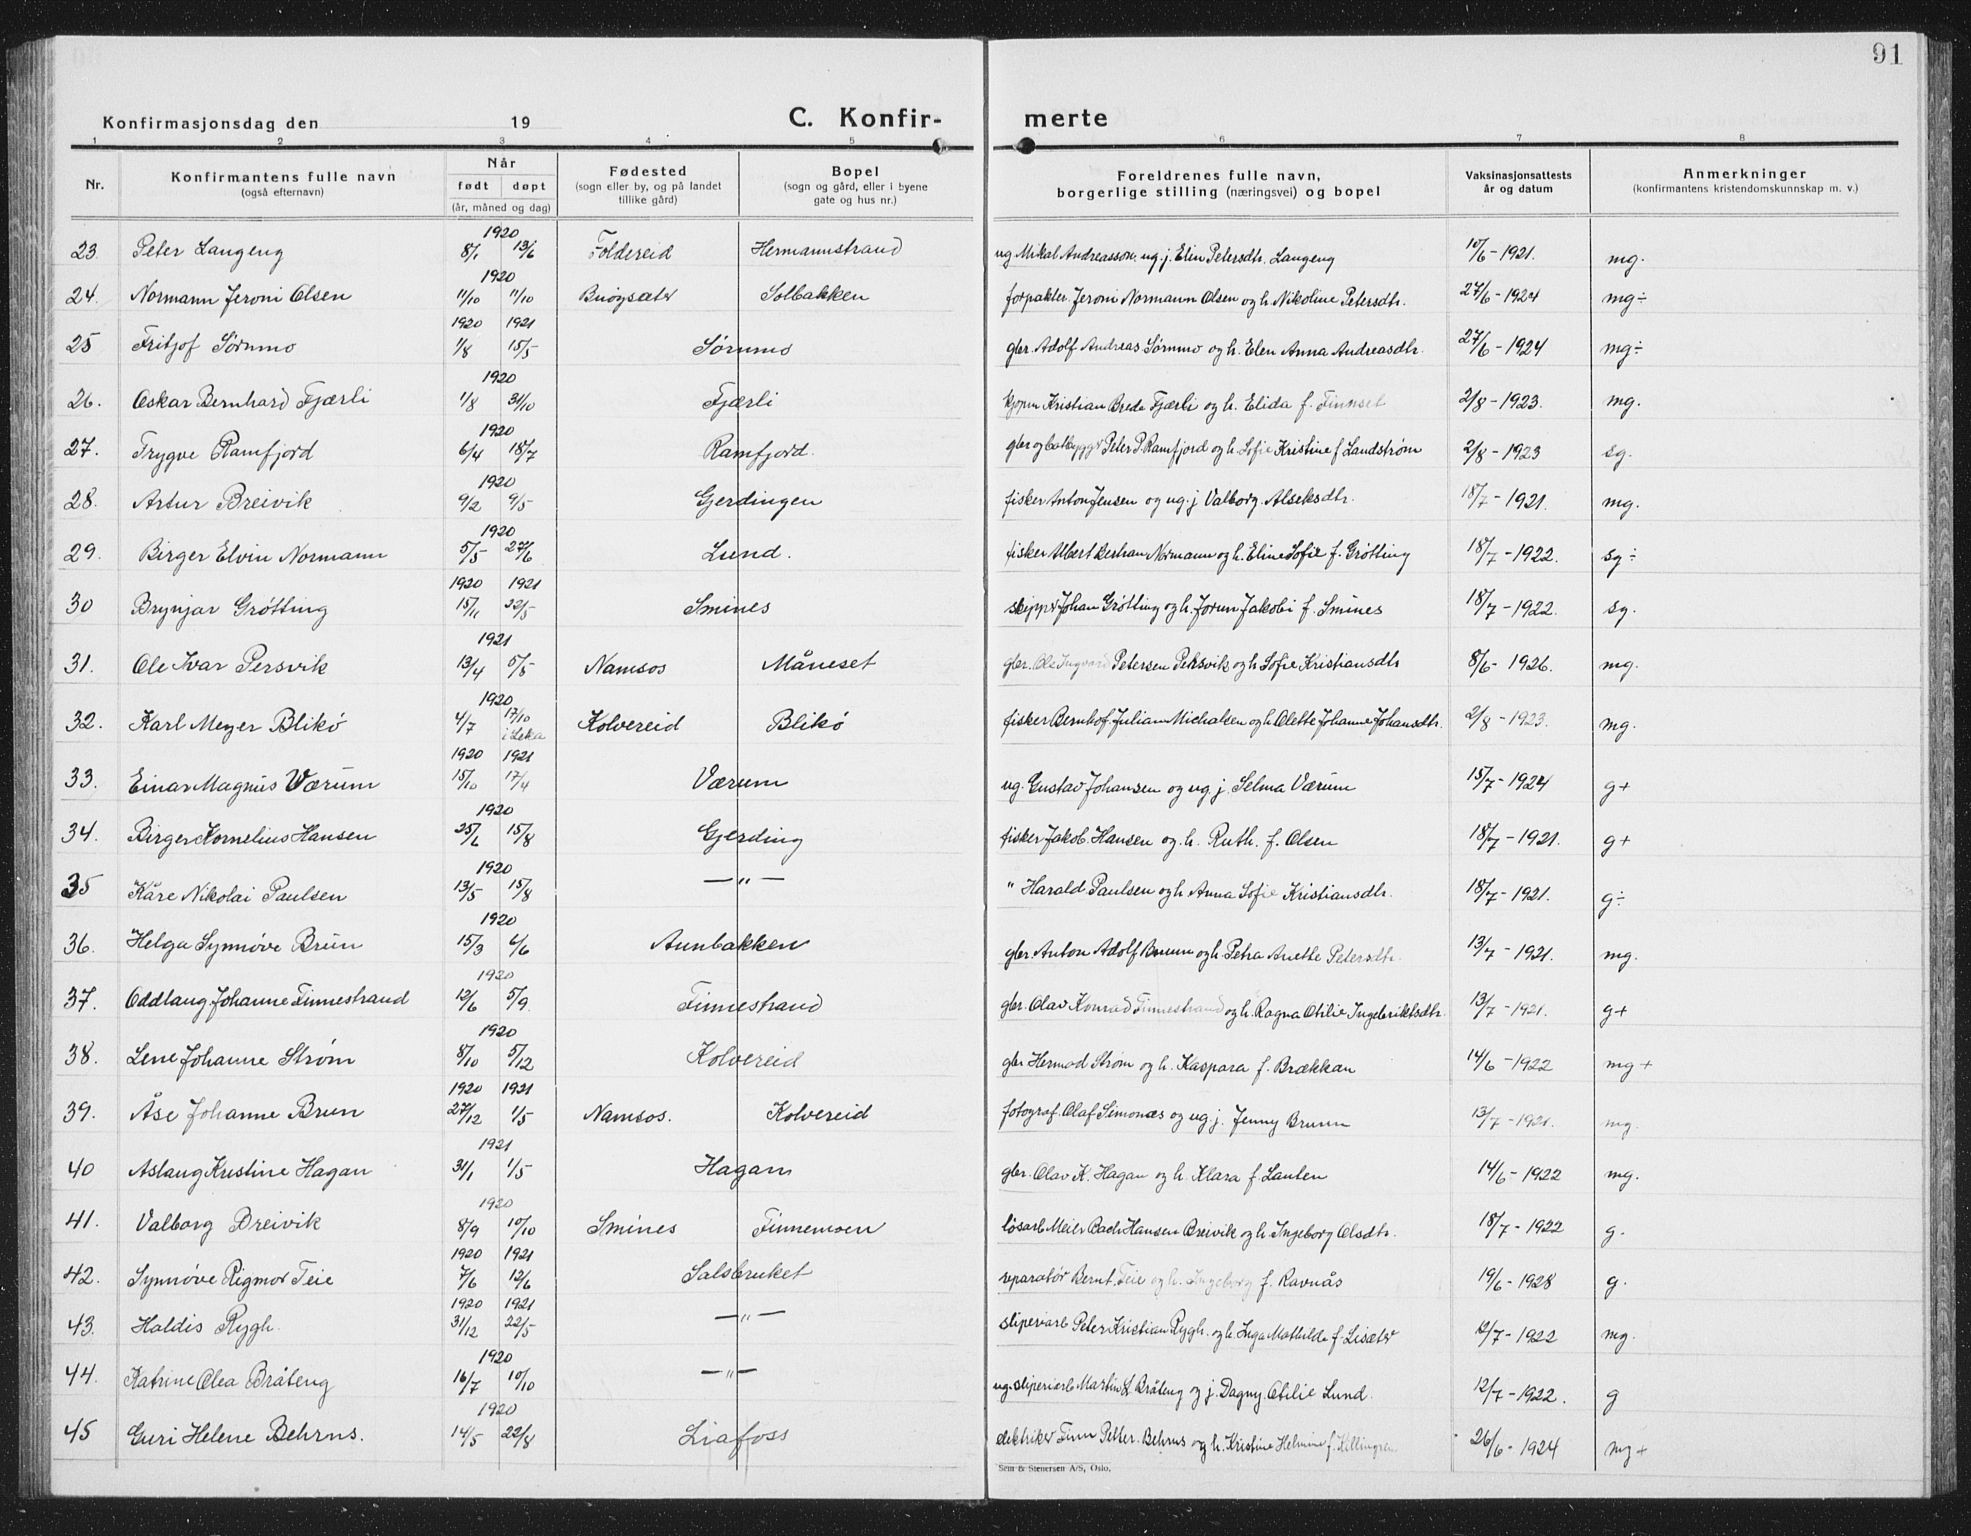 91
Konfirmasjonsdag den 19 C. Konfir- merte
1 2 3 4 5 6 7 8
Nr. Konfirmantens fulle navn (også efternavn) Når født døpt (år, måned og dag) Fødested (sogn eller by, og på landet tillike gård) Bopel (sogn og gård, eller i byene gate og hus nr.) Foreldrenes fulle navn, borgerlige stilling (næringsvei) og bopel Vaksinasjonsattests år og datum Anmerkninger (konfirmantens kristendomskunnskap m. v.)
23. Peter Langeng 1920 8/1 13/6 Foldereid Hermannstrand ug Mikal Andreassen. ug. j. Elin Petersdtr. Langeng 10/6 - 1921. mg.
24. Normann Jeroni Olsen 1920 11/10 11/10 Solbakken forpakter. Jeroni Normann Olsen og h. Nikoline Petersdtr. 27/6 - 1924 mg÷
25 Fritjof Sørnmo 1920 1921 1/8 15/5 Sørnmo gbr. Adolf Andreas Sørnmo og h. Elen Anna Andreasdtr. 27/6 - 1924 mg÷
26. Oskar Bernhard Fjærli 1920 1/8 31/10 Fjærli Kristian Brede Fjærli og h. Elida f. Finnset 2/8 - 1923. mg.
27. Trygve Ramfjord 1920 6/4 18/7 Ramfjord. gbr og Peter P. Ramfjord og h. Sofie Kristine f Landstrøm 2/8 - 1923 sg.
28. Artur Breivik 1920 9/2 9/5 Gjerdingen fisker Anton Jensen og ug. j Valborg Alseksdtr. 18/7 - 1921. mg.
29. Birger Elvin Normann 1920 5/5 27/6 Lund. fisker Albert Normann og h. Eline Sofie f. Grøtting 18/7 - 1922. sg÷
30 Brynjar Grøtting 1920 1921 15/11 22/5 Smines skipper Johan Grøtting og h. Jorun Jakobi f. Smines 18/7 - 1922. sg.
31. Ole Ivar Persvik 1921 13/4 5/5 Namsos Måneset gbr. Ole Ingvard Petersen Persvik og h Sofie Kristiansdtr 8/6 - 1926. mg.
32. Karl Meyer Blikö 1920 4/7 17/10 i Leka Kolvereid Blikö fisker Bernhof. Julian Michalsen og h Olette Johanne Johansdtr. 2/8 - 1923. mg.
33. Einar Magnus Værum 1920 1921 15/10 17/4 Værum ug. Gustav Johansen og ug. j. Selma Værum 15/7 - 1924 g+
34. Birger Kornelius Hansen 1920 25/6 15/8 Gjerding fisker Jakob. Hansen og. h. Ruth. f. Olsen 18/7 - 1921. g+
35 Kåre Nikolai Paulsen 1920 13/5 15/8 —"— " Harald Paulsen og h Anna Sofie Kristiansdtr. 18/7 - 1921. g÷
36. Helga Synnøve Brun 1920 15/3 6/6 Aunbakken gbr. Anton Adolf Bruun og h. Petra Anette Petersdtr. 13/7 - 1921. mg.
37. Oddlaug Johanne Finnestrand 1920 12/6 5/9 Finnestrand gbr. Olav Konrad Finnestrand og h. Ragna Otilie Ingebriktsdtr. 13/7 - 1921. g+
38. Lene Johanne Strøm 1920 8/10 5/12 Kolvereid gbr Hermod Strøm og h. Kaspara f. Brækkan 14/6 - 1922 mg+
39. Åse Johanne Brun 1920 1921 27/12 1/5 Namsos. Kolvereid fotograf. Olaf Simonæs og ug j. Jenny Bruun 13/7 - 1921. mg.
40 Aslaug Kristine Hagan 1921 31/1 1/5 Hagan gbr. Olav K. Hagan og h. Klara f. Lauten 14/6 - 1922 mg.
41. Valborg Breivik 1920 8/9 10/10 Smines Finnemoen løsarb Meier Bach Hansen Breivik og h Ingeborg Olsdtr. 18/7 - 1922 g.
42. Synnøve Rigmor Teie 1920 1921 7/6 12/6 Salsbruket reparatör Bernt Teie og h. Ingeborg f. Ravnås 19/6 - 1928 g.
43. Haldis Rygh. 1920 1921 31/12 22/5 —"— sliperiarb Peter Kristian Rygh. og h. Inga Mathilde f. Lisæter 12/7 - 1922 mg.
44. Katrine Olea Bråteng 1920 16/7 10/10 —"— ug. sliperiarb Martin L Bråteng og j. Dagny Otilie Lund. 12/7 - 1922. g
45 Guri Helene Behrns. 1920 14/5 22/8 Liafoss elektriker Finn Petter. Behrns og h. Kristine Helmine f. 26/6 - 1924 mg+
Sem & Stenersen A/S, Oslo.